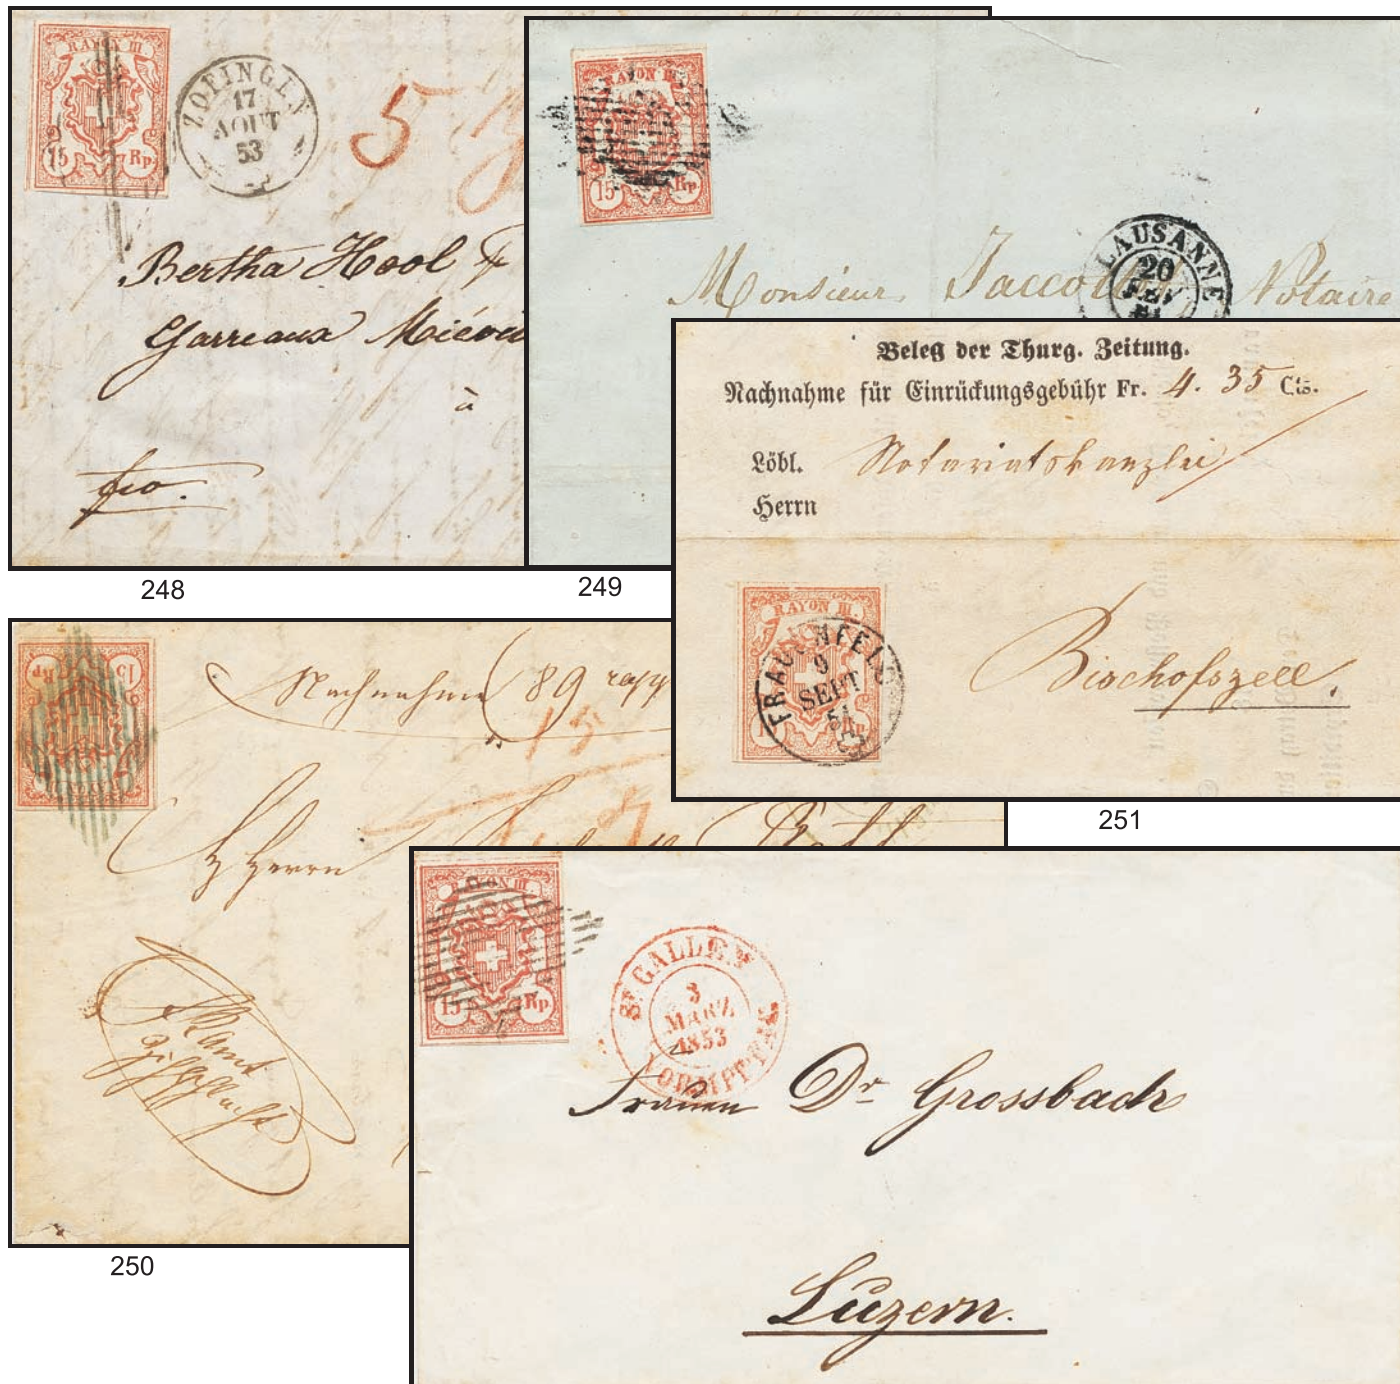 RAYON III
15 Rp
ZOFINGEN
17
AOUT
53
5
Bertha Hool
Garreaux
à
fco.
248
RAYON III
15 Rp.
LAUSANNE
20
Monsieur Jaccottet Notaire
249
Beleg der Thurg. Zeitung.
Nachnahme für Einrückungsgebühr Fr. 4. 35 Cts.
Löbl. Notariatskanzlei
Herrn
RAYON III.
Rp.
FRAUENFELD
9
SEPT
54
Bischofszell.
251
15 Rp
Nachnahme 89
15
Herrn
250
RAYON III.
15 Rp.
St. GALLEN
3
MÄRZ
1853
Frauen Dr Grossbach
Luzern.